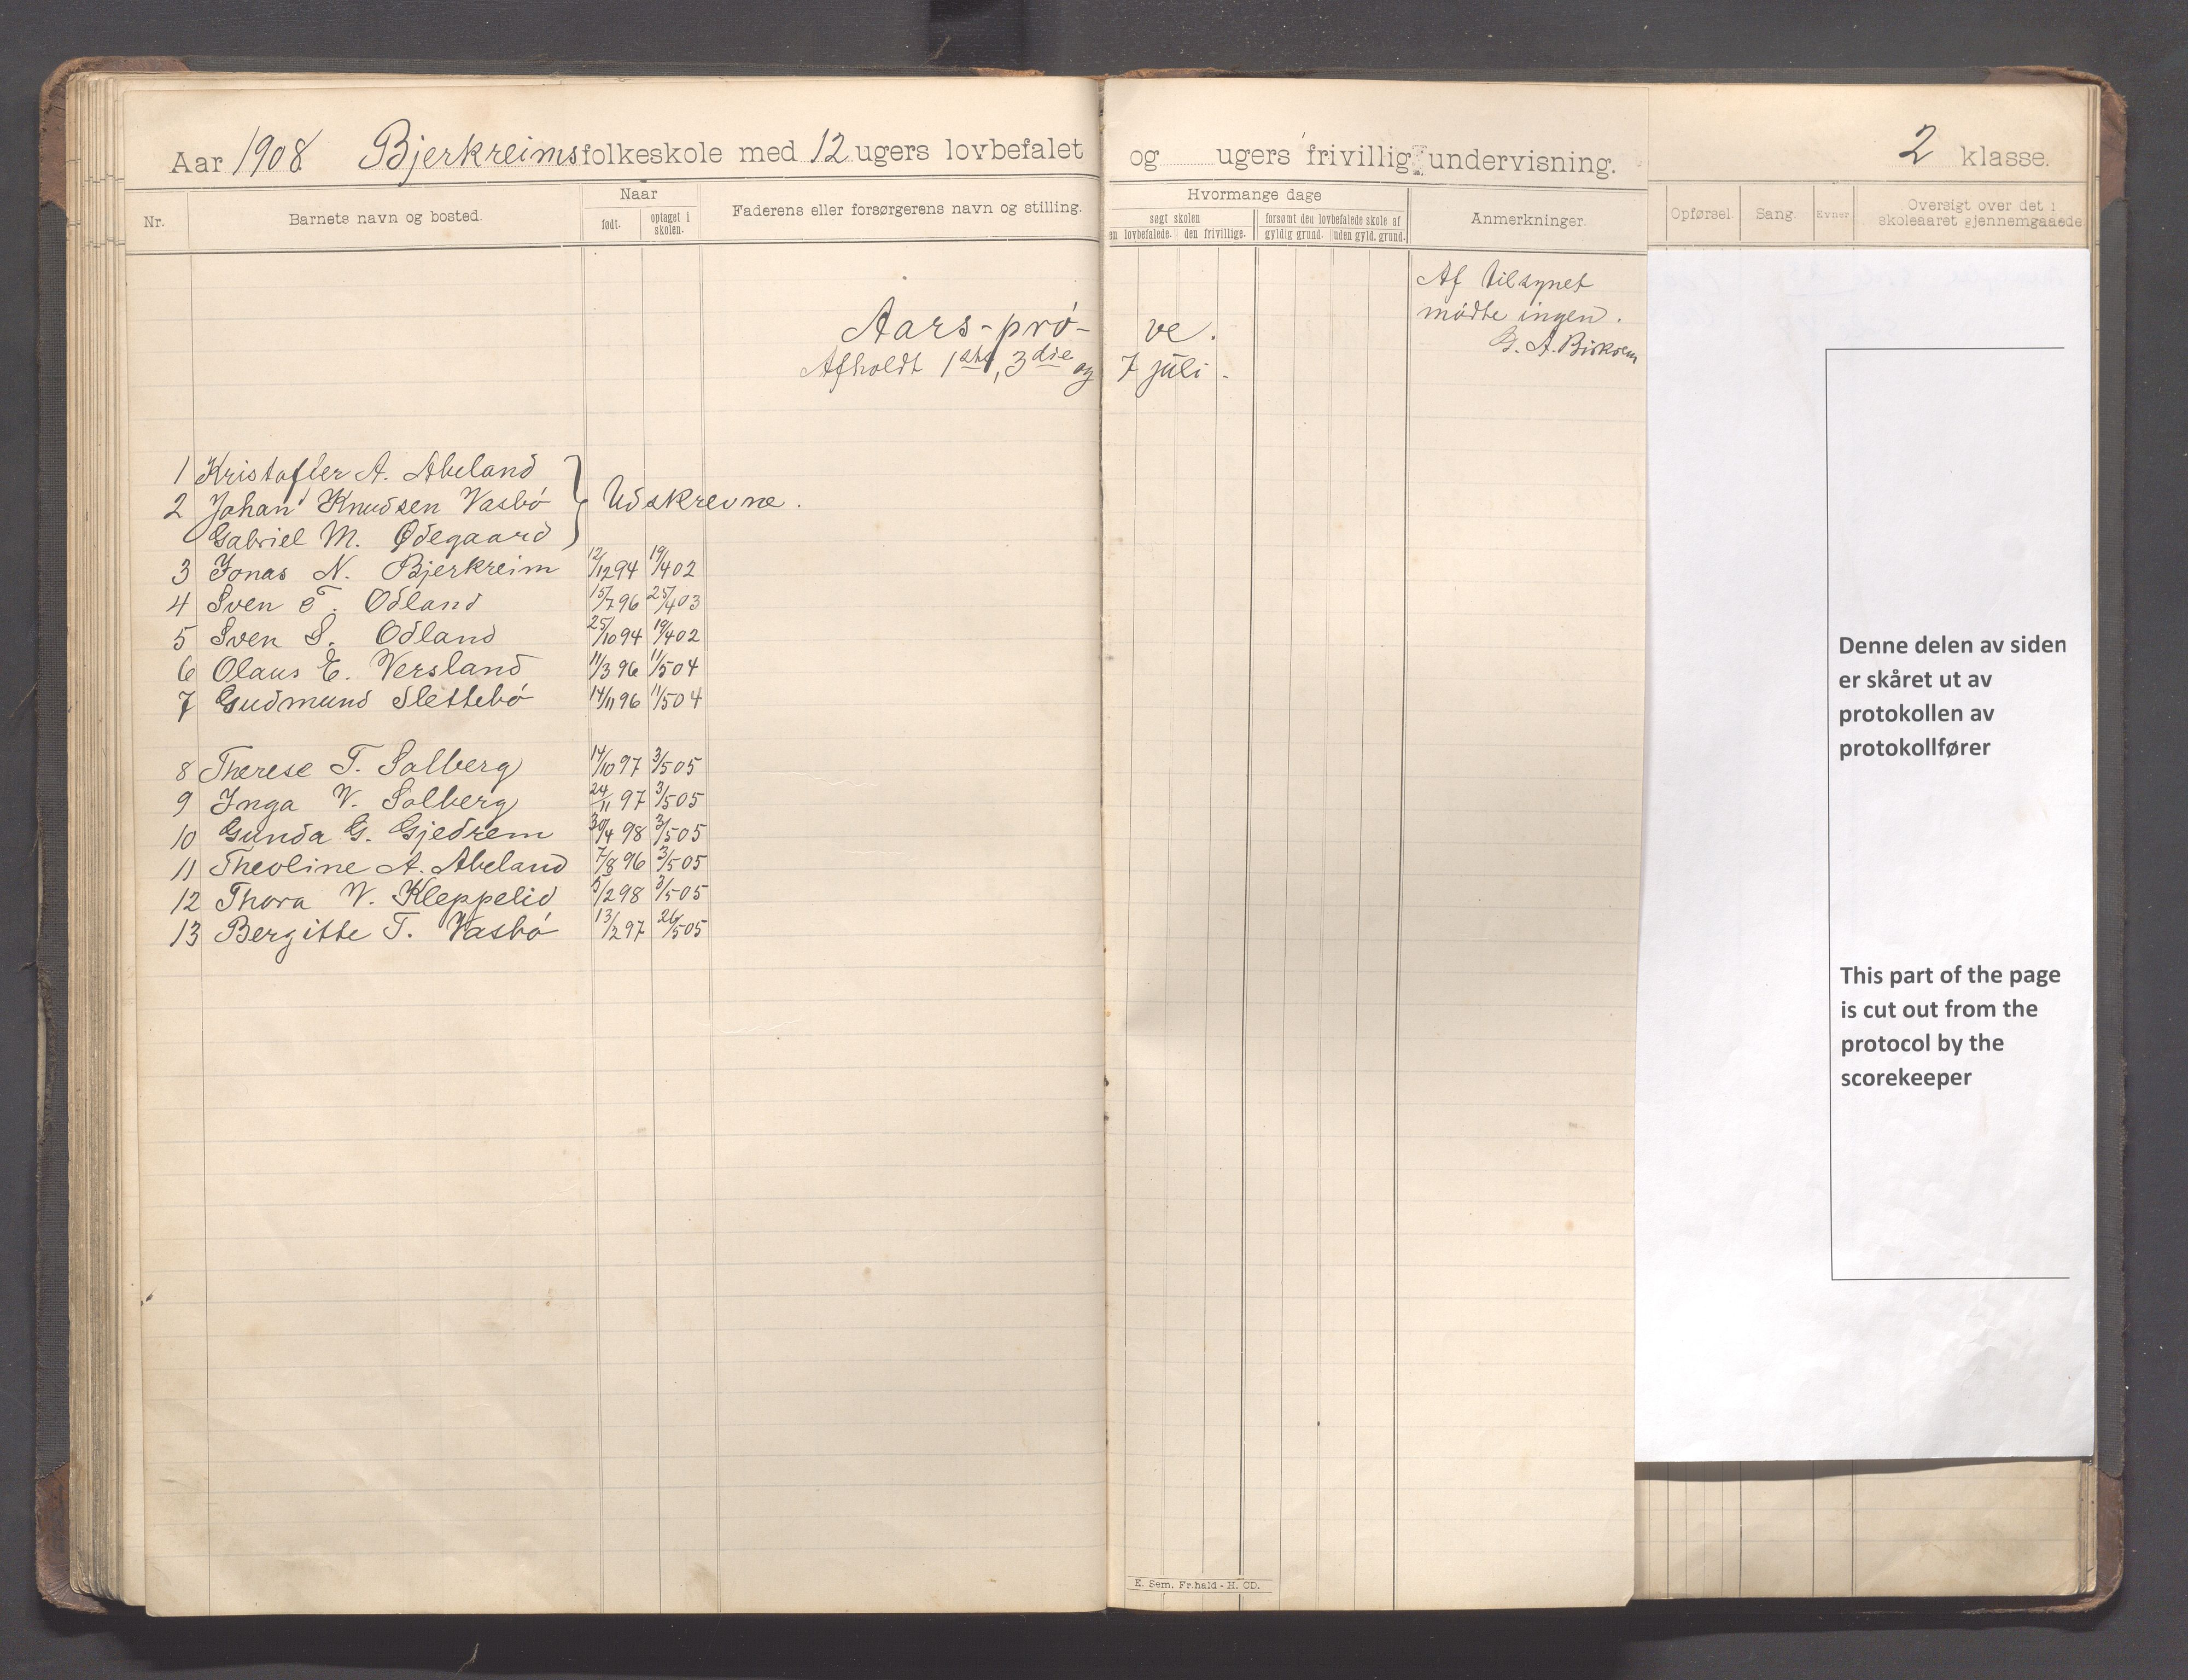 Aar 1908 Bjerkreims folkeskole med 12 ugers lovbefalet og ugers frivillig undervisning. 2 klasse.
Nr.
Barnets navn og bosted.
Naar
født.
optaget i skolen.
Faderens eller forsørgerens navn og stilling.
Hvormange dage
søgt skolen
en lovbefalede.
den frivillige.
forsømt den lovbefalede skole af
gyldig grund.
uden gyld. grund.
Anmerkninger.
Opførsel.
Sang.
Evner
Oversigt over det i
skoleaaret gjennemgaaede
Aars-prø- ve.
Afholdt 1ste, 3die og 7 juli.
Af tilsynet
mødte ingen.
G. A. Birkrem
1 Kristoffer A. Abeland
2 Johan Knudsen Vasbø
Gabriel M. Ødegaard
Udskrevne.
3 Jonas N. Bjerkreim 12/12 94 19/4 02
4 Sven T. Odland 15/7 96 25/4 03
5 Sven S. Odland 25/10 94 19/4 02
6 Olaus E. Versland 11/3 96 11/5 04
7 Gudmund Slettebø 14/11 96 11/5 04
8 Therese T. Solberg 14/10 97 3/5 05
9 Inga V. Solberg 24/11 97 3/5 05
10 Gunda G. Gjedrem 30/4 98 3/5 05
11 Theoline A. Abeland 7/8 96 3/5 05
12 Thora V. Kleppelid 5/2 98 3/5 05
13 Bergitte T. Vasbø 13/2 97 26/5 05
Denne delen av siden
er skåret ut av
protokollen av
protokollfører
This part of the page
is cut out from the
protocol by the
scorekeeper
E. Sem, Fr.hald - H. OD.